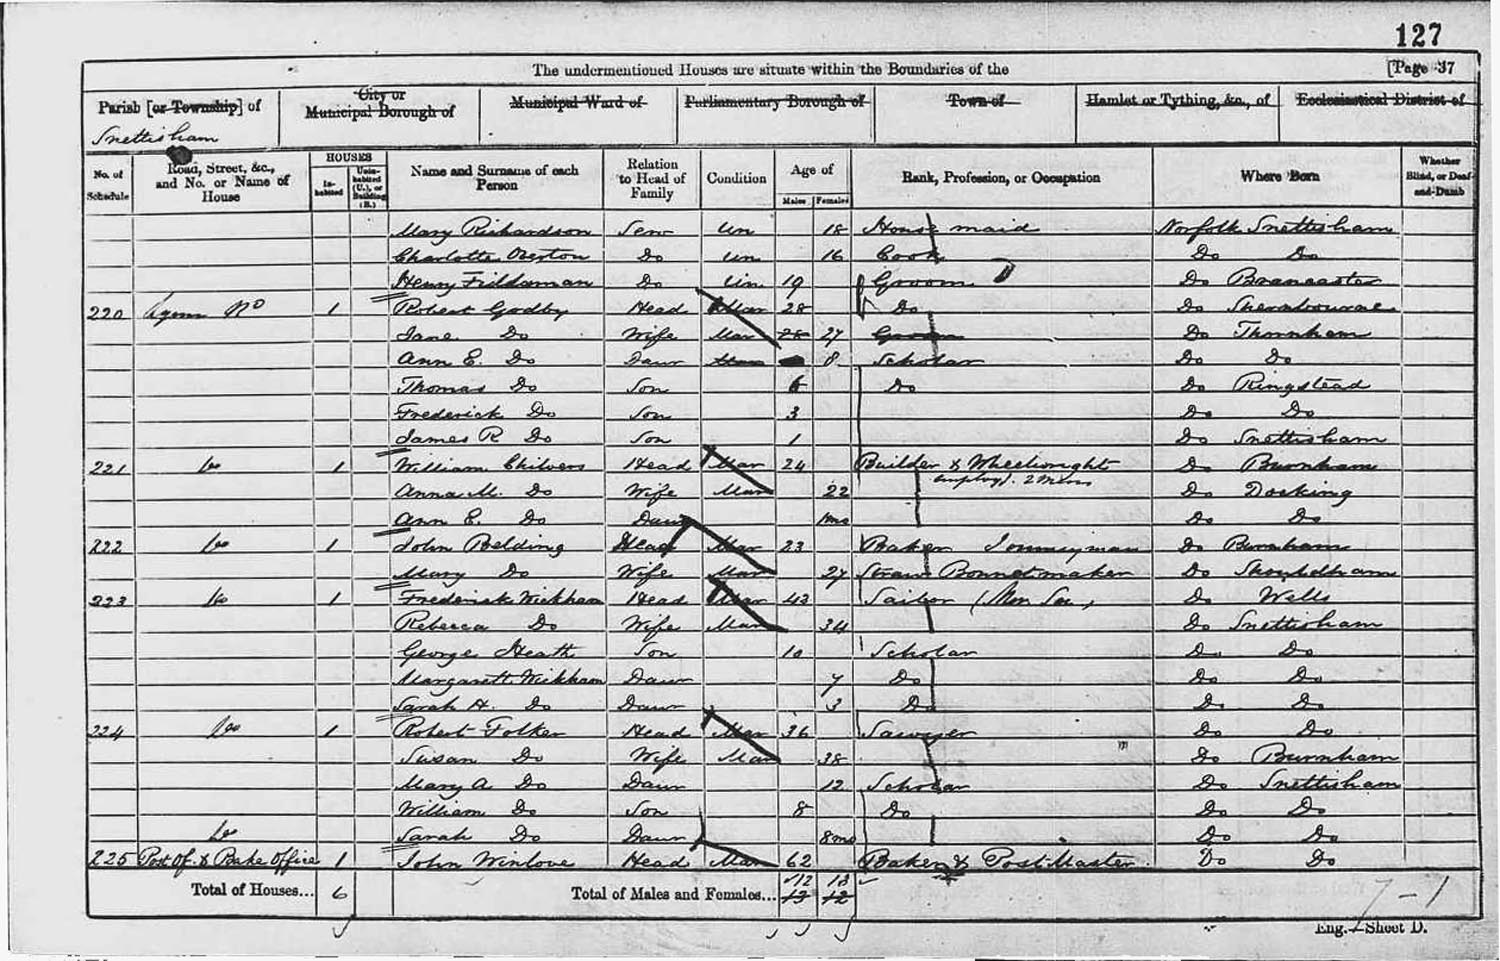 127
The undermentioned Houses are situate within the Boundaries of the [Page 37
Parish [or Township] of City or Municipal Borough of Municipal Ward of Parliamentary Borough of Town of Hamlet or Tything, &c., of Ecclesiastical District of
Snettisham
No. of Schedule Road, Street, &c., and No. or Name of House HOUSES Inhabited Uninhabited (U.), or Building (B.) Name and Surname of each Person Relation to Head of Family Condition Age of Males Females Rank, Profession, or Occupation Where Born Whether Blind, or Deaf-and-Dumb
Mary Richardson Serv Un 18 House maid Norfolk Snettisham
Charlotte Overton Do Un 16 Cook Do Do
Henry Fildaman Do Un 19 Groom Do Brancaster
220 Lynn Rd 1 Robert Godby Head Mar 28 Do Do Shernbourne
Jane Do Wife Mar 28 27 Groom Do Thornham
Ann E. Do Daur 8 Scholar Do Do
Thomas Do Son 6 Do Do Ringstead
Frederick Do Son 3 Do Do
James R Do Son 1 Do Snettisham
221 Do 1 William Chilvers Head Mar 24 Builder & Wheelwright Do Burnham
employg. 2 Men
Anna M. Do Wife Mar 22 Do Docking
Ann E. Do Daur 1mo Do Do
222 Do 1 John Belding Head Mar 23 Baker Journeyman Do Burnham
Mary Do Wife Mar 27 Straw Bonnet maker Do Shouldham
223 Do 1 Frederick Wickham Head Mar 43 Sailor (Mer Ser, Do Wells
Rebecca Do Wife Mar 34 Do Snettisham
George Heath Son 10 Scholar Do Do
Margarett Wickham Daur 7 Do Do Do
Sarah H. Do Daur 3 Do Do Do
224 Do 1 Robert Folker Head Mar 36 Sawyer Do Do
Susan Do Wife Mar 38 Do Burnham
Mary A Do Daur 12 Scholar Do Snettisham
William Do Son 8 Do Do Do
Do Sarah Do Daur 8mo Do Do
225 Post Of. & Bake Office 1 John Winlove Head Mar 62 Baker & Post Master Do Do
Total of Houses... 6 Total of Males and Females... 12 13
13 12
7-1
Eng.—Sheet D.